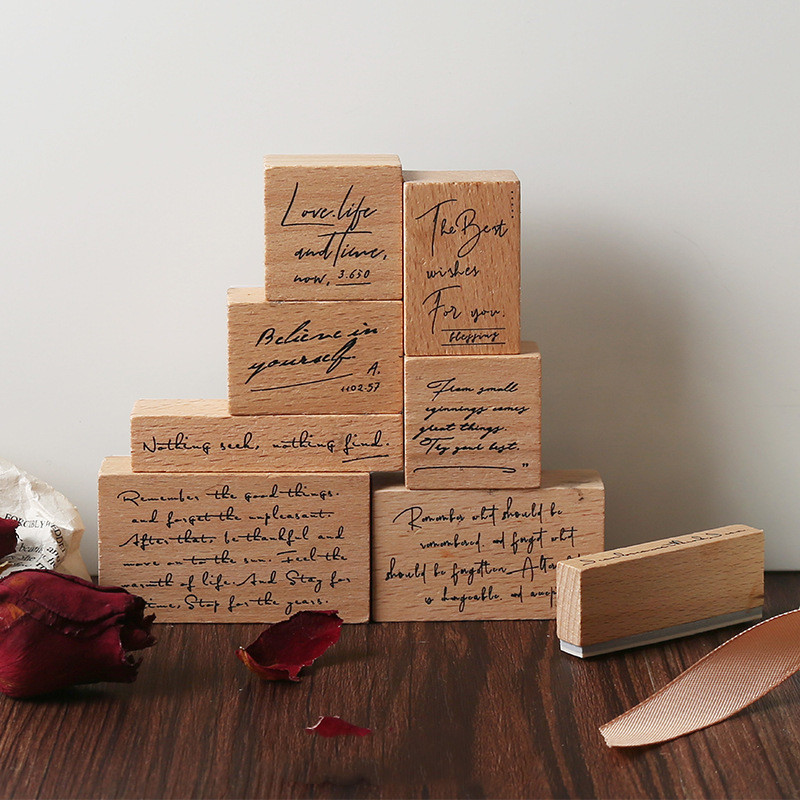 Love.life
and Time,
now, 3.650
The Best
wishes
For you.
blessing
Believe in
yourself.
A.
1102.57
From small
eginnings comes
great things.
Try your best.
”
Nothing seek, nothing find.
Remember the good things.
and forget the unpleasant.
After that, be thankful and
move on to the sun. Feel the
warmth of life. And Stay for
time, Stop for the years.
Remember what should be
remembered, and forget what
should be forgotten. Alter
is changeable. and accept
FORCIBLY